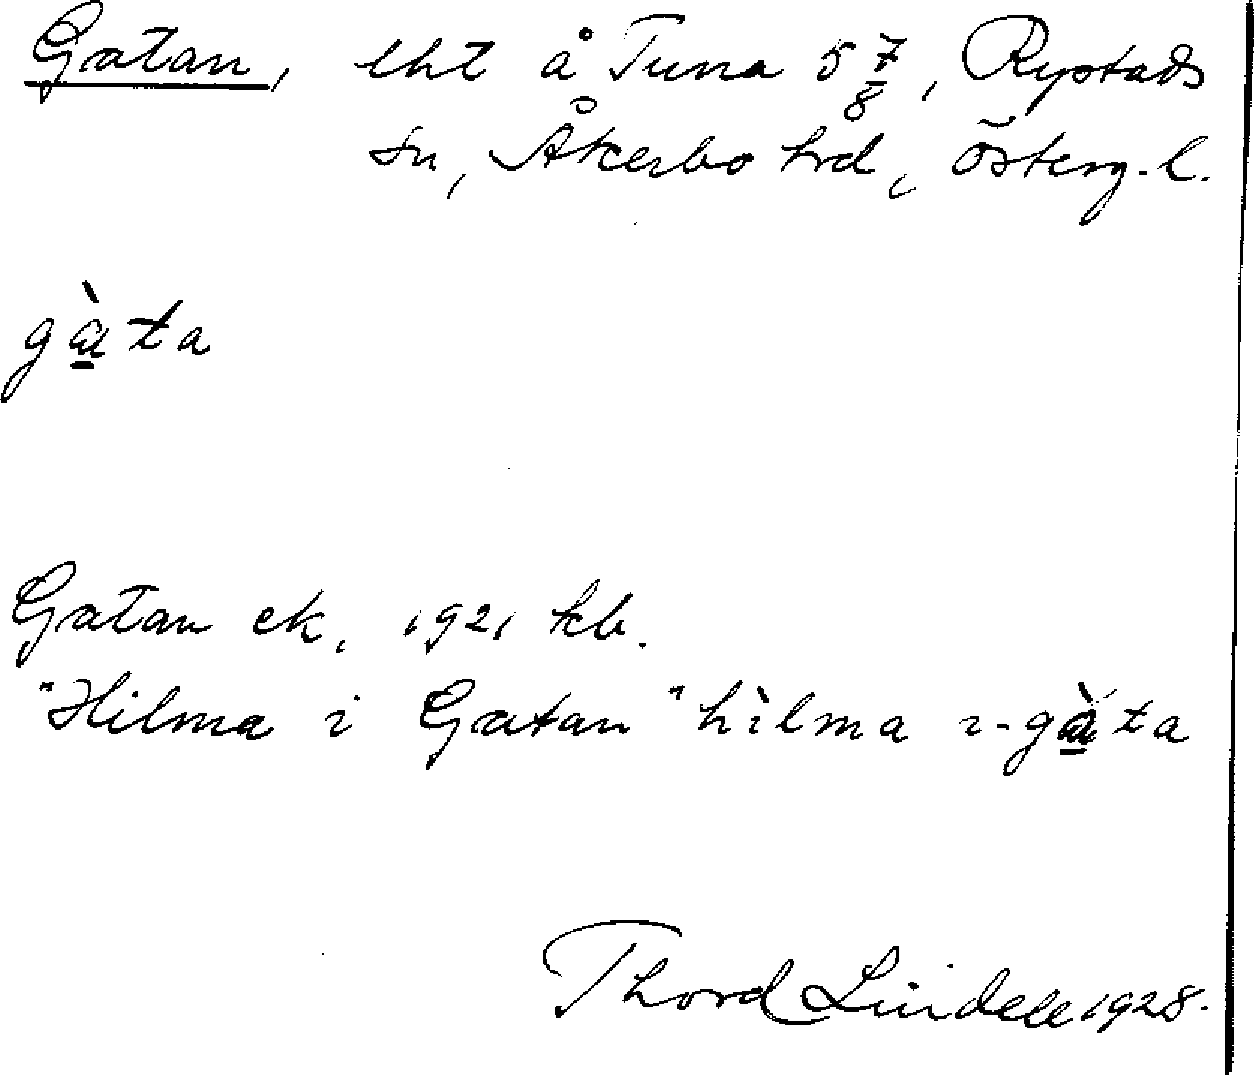 Gatan, lht å Tuna 5 7/8, Rystads
sn, Åkerbo hrd, Österg. l.
gàta
Gatan ek. 1921 kb.
"Hilma i Gatan" hìlma i-gàta
Thord Lindell 1928.